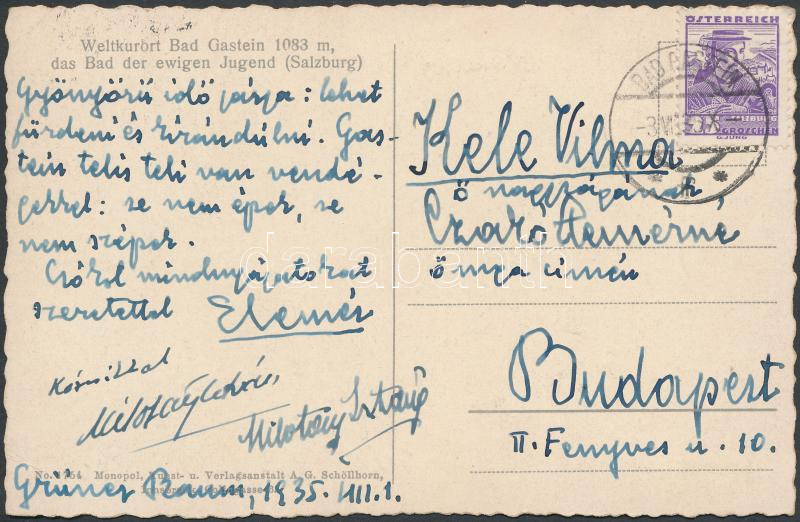 Weltkurört Bad Gastein 1083 m,
das Bad der ewigen Jugend (Salzburg)
Gyönyörü idő járja: lehet
fürdeni és kirándulni. Gas-
tein telis teli van vendé-
gekkel: se nem épek, se
nem szépek.
Csókol mindnyájatokat
szeretettel Elemér
Milotay István
No. Monopol, Kunst- u. Verlagsanstalt A. G. Schöllhorn,
Grüner Baum, 1935. VIII. 1.
ÖSTERREICH
GROSCHEN
BAD GASTEIN
Kele Vilma
ő nagyságának
Czakó Elemérné
ő mga címén
Budapest
II. Fenyves u. 10.
darabanth